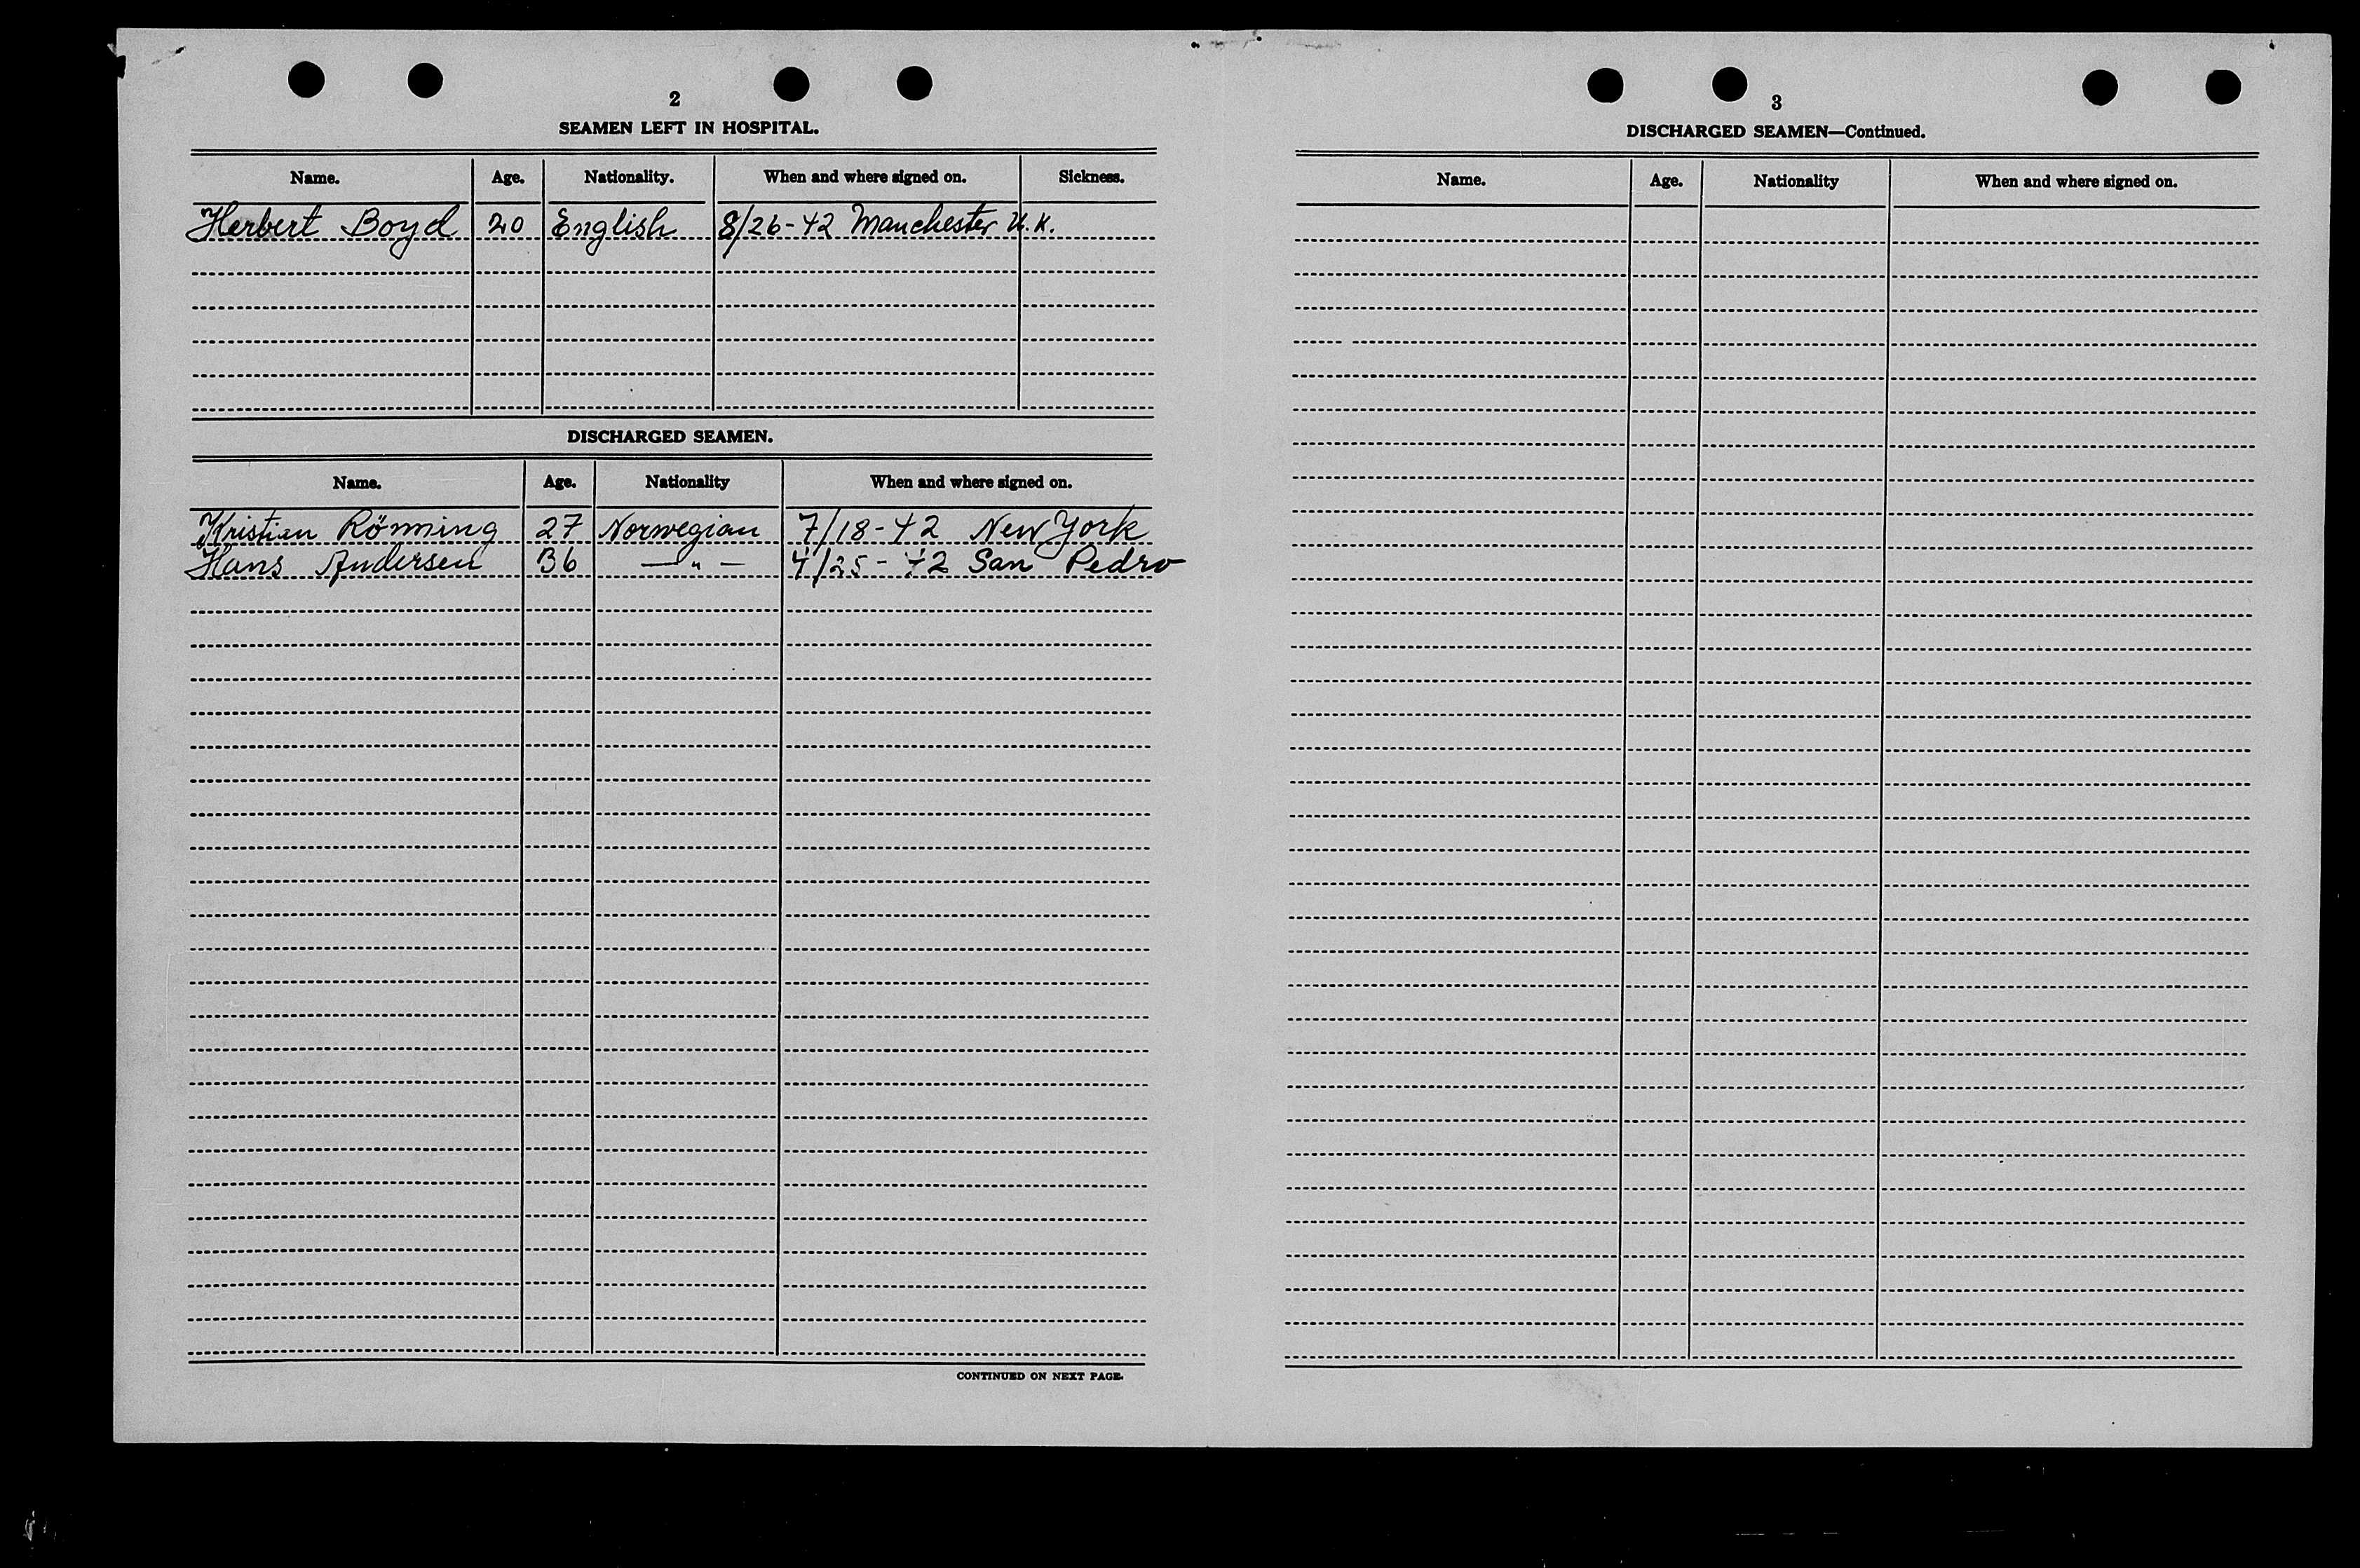 2
SEAMEN LEFT IN HOSPITAL.
Name. Age. Nationality. When and where signed on. Sickness.
Herbert Boyd 20 English 8/26-42 Manchester U.K.
DISCHARGED SEAMEN.
Name. Age. Nationality When and where signed on.
Kristian Rönning 27 Norwegian 7/18-42 New York
Hans Andersen 36 —"— 4/25-42 San Pedro
CONTINUED ON NEXT PAGE.
3
DISCHARGED SEAMEN—Continued.
Name. Age. Nationality When and where signed on.